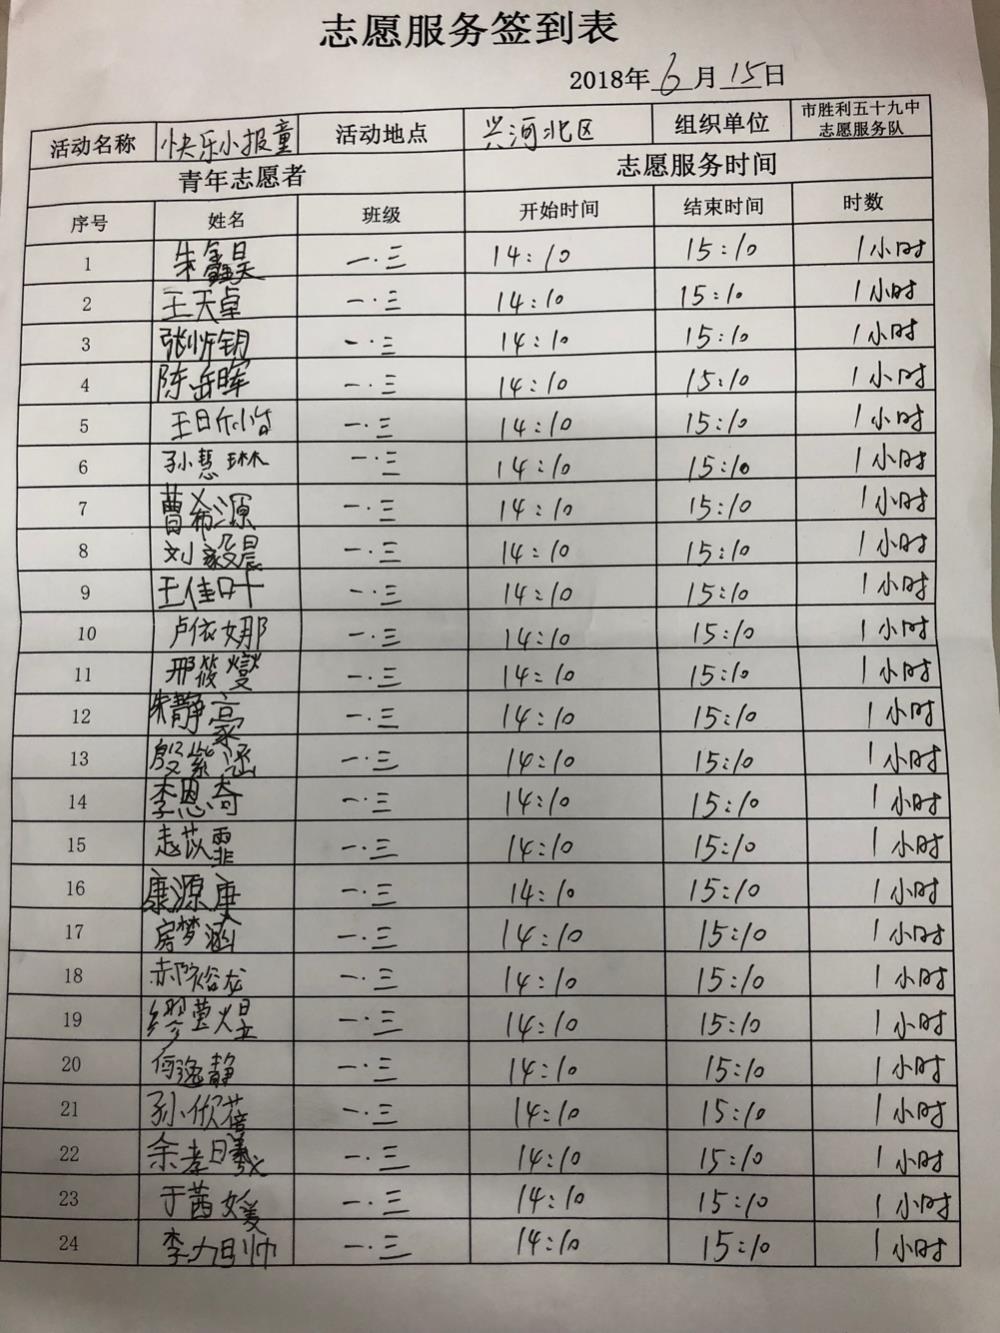 志愿服务签到表
2018年6月15日
活动名称 快乐小报童 活动地点 兴河北区 组织单位 市胜利五十九中志愿服务队
青年志愿者 志愿服务时间
序号 姓名 班级 开始时间 结束时间 时数
1 朱鑫昊 一.三 14:10 15:10 1小时
2 王天卓 一.三 14:10 15:10 1小时
3 张忻钥 一.三 14:10 15:10 1小时
4 陈岳晖 一.三 14:10 15:10 1小时
5 一.三 14:10 15:10 1小时
6 孙慧琳 一.三 14:10 15:10 1小时
7 曹希源 一.三 14:10 15:10 1小时
8 刘毅晨 一.三 14:10 15:10 1小时
9 王佳叶 一.三 14:10 15:10 1小时
10 卢依娜 一.三 14:10 15:10 1小时
11 邢筱燮 一.三 14:10 15:10 1小时
12 朱静豪 一.三 14:10 15:10 1小时
13 殷紫涵 一.三 14:10 15:10 1小时
14 李恩奇 一.三 14:10 15:10 1小时
15 赵苡霏 一.三 14:10 15:10 1小时
16 康源庚 一.三 14:10 15:10 1小时
17 房梦涵 一.三 14:10 15:10 1小时
18 一.三 14:10 15:10 1小时
19 缪萱煜 一.三 14:10 15:10 1小时
20 何逸静 一.三 14:10 15:10 1小时
21 孙欣蓓 一.三 14:10 15:10 1小时
22 余孝曦 一.三 14:10 15:10 1小时
23 于茜媛 一.三 14:10 15:10 1小时
24 一.三 14:10 15:10 1小时